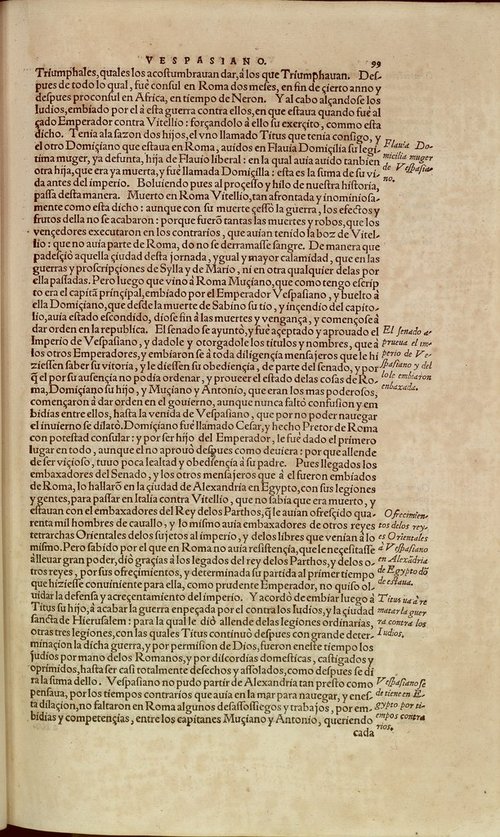 VESPASIANO. 99
Triumphales, quales los acostumbrauan dar, à los que Triumphauan. Des-
pues de todo lo qual, fuè consul en Roma dos meses, en fin de çierto anno y
despues proconsul en Africa, en tiempo de Neron. Y al cabo alçandose los
Iudios, embiado por el à esta guerra contra ellos, en que estaua quando fuè al
çado Emperador contra Vitellio: forçandolo à ello su exerçito, commo esta
dicho. Tenia ala sazon dos hijos, el vno llamado Titus que tenia consigo, y
el otro Domiçiano que estaua en Roma, auidos en Flauia Domiçilia su legi-
tima muger, ya defunta, hija de Flauio liberal: en la qual auia auido tanbien
otra hija, que era ya muerta, y fuè llamada Domiçilla: esta es la suma de su vi-
da antes del imperio. Boluiendo pues al proçesso y hilo de nuestra historia,
passa desta manera. Muerto en Roma Vitellio, tan afrontada y inominiosa-
mente como esta dicho: aunque con su muerte çessò la guerra, los efectos y
frutos della no se acabaron: porque fuerõ tantas las muertes y robos, que los
vençedores executaron en los contrarios, que auian tenido la boz de Vitel-
lio: que no auia parte de Roma, do no se derramasse sangre. De manera que
padesçiò aquella çiudad desta jornada, ygual y mayor calamidad, que en las
guerras y proscripçiones de Sylla y de Mario, ni en otra qualquier delas por
ella passadas. Pero luego que vino à Roma Muçiano, que como tengo escrip
to era el capitã prinçipal, embiado por el Emperador Vespasiano, y buelto à
ella Domiçiano, que desde la muerte de Sabino su tio, y inçendio del capito-
lio, auia estado escondido, diose fin à las muertes y vengança, y començose à
dar orden en la republica. El senado se ayuntò, y fuè aceptado y aprouado el
Imperio de Vespasiano, y dadole y otorgadole los titulos y nombres, que à
los otros Emperadores, y embiaron se à toda diligençia mensajeros que le hi
ziessen saber su vitoria, y le diessen su obediençia, de parte del senado, y por
q̃ el por su ausençia no podia ordenar, y proueer el estado delas cosas de Ro-
ma, Domiçiano su hijo, y Muçiano y Antonio, que eran los mas poderosos,
començaron à dar orden en el gouierno, aunque nunca faltò confusion y em
bidias entre ellos, hasta la venida de Vespasiano, que por no poder nauegar
el inuierno se dilatò. Domiçiano fuè llamado Cesar, y hecho Pretor de Roma
con potestad consular: y por ser hijo del Emperador, le fuè dado el primero
lugar en todo, aunque el no aprouò despues como deuiera: por que allende
de ser viçioso, tuuo poca lealtad y obediençia à su padre. Pues llegados los
embaxadores del Senado, y los otros mensajeros que à el fueron embiados
de Roma, lo hallarõ en la çiudad de Alexandria en Egypto, con sus legiones
y gentes, para passar en Italia contra Vitellio, que no sabia que era muerto, y
estauan con el embaxadores del Rey delos Parthos, q̃ le auian ofresçido qua-
renta mil hombres de cauallo, y lo mismo auia embaxadores de otros reyes
tetrarchas Orientales delos sujetos al imperio, y delos libres que venian à lo
mismo. Pero sabido por el que en Roma no auia resistençia, que le neçesitasse
à lleuar gran poder, diò graçias à los legados del rey delos Parthos, y delos o-
tros reyes, por sus ofrecimientos, y determinada su partida al primer tiempo
que hiziesse conuiniente para ella, como prudente Emperador, no quiso ol-
uidar la defensa y acreçentamiento del imperio. Y acordò de embiar luego à
Titus su hijo, à acabar la guerra enpeçada por el contra los Iudios, y la çiudad
sancta de Hierusalem: para la qual le diò allende delas legiones ordinarias,
otras tres legiones, con las quales Titus continuò despues con grande deter-
minaçion la dicha guerra, y por permision de Dios, fueron en este tiempo los
judios por mano delos Romanos, y por discordias domesticas, castigados y
oprimidos, hasta ser casi totalmente desechos y assolados, como despues se di
ra la suma dello. Vespasiano no pudo partir de Alexandria tan presto como
pensaua, por los tiempos contrarios que auia en la mar para nauegar, y enes-
ta dilaçion, no faltaron en Roma algunos desassossiegos y trabajos, por em-
bidias y competençias, entre los capitanes Muçiano y Antonio, queriendo
cada
Flauia Do-
micilia muger
de Vespasia-
no.
El senado a-
prueua el im-
perio de Ve-
spasiano y del
lo le embaron
enbaxada.
Ofrecimien-
tos delos rey-
es Orientales
à Vespasiano
en Alexãdria
de Egypto dõ
de estaua.
Titus ua à re
matar la guer
ra contra los
Iudios.
Vespasiano se
detiene en E-
gypto por ti-
empos contra
rios.